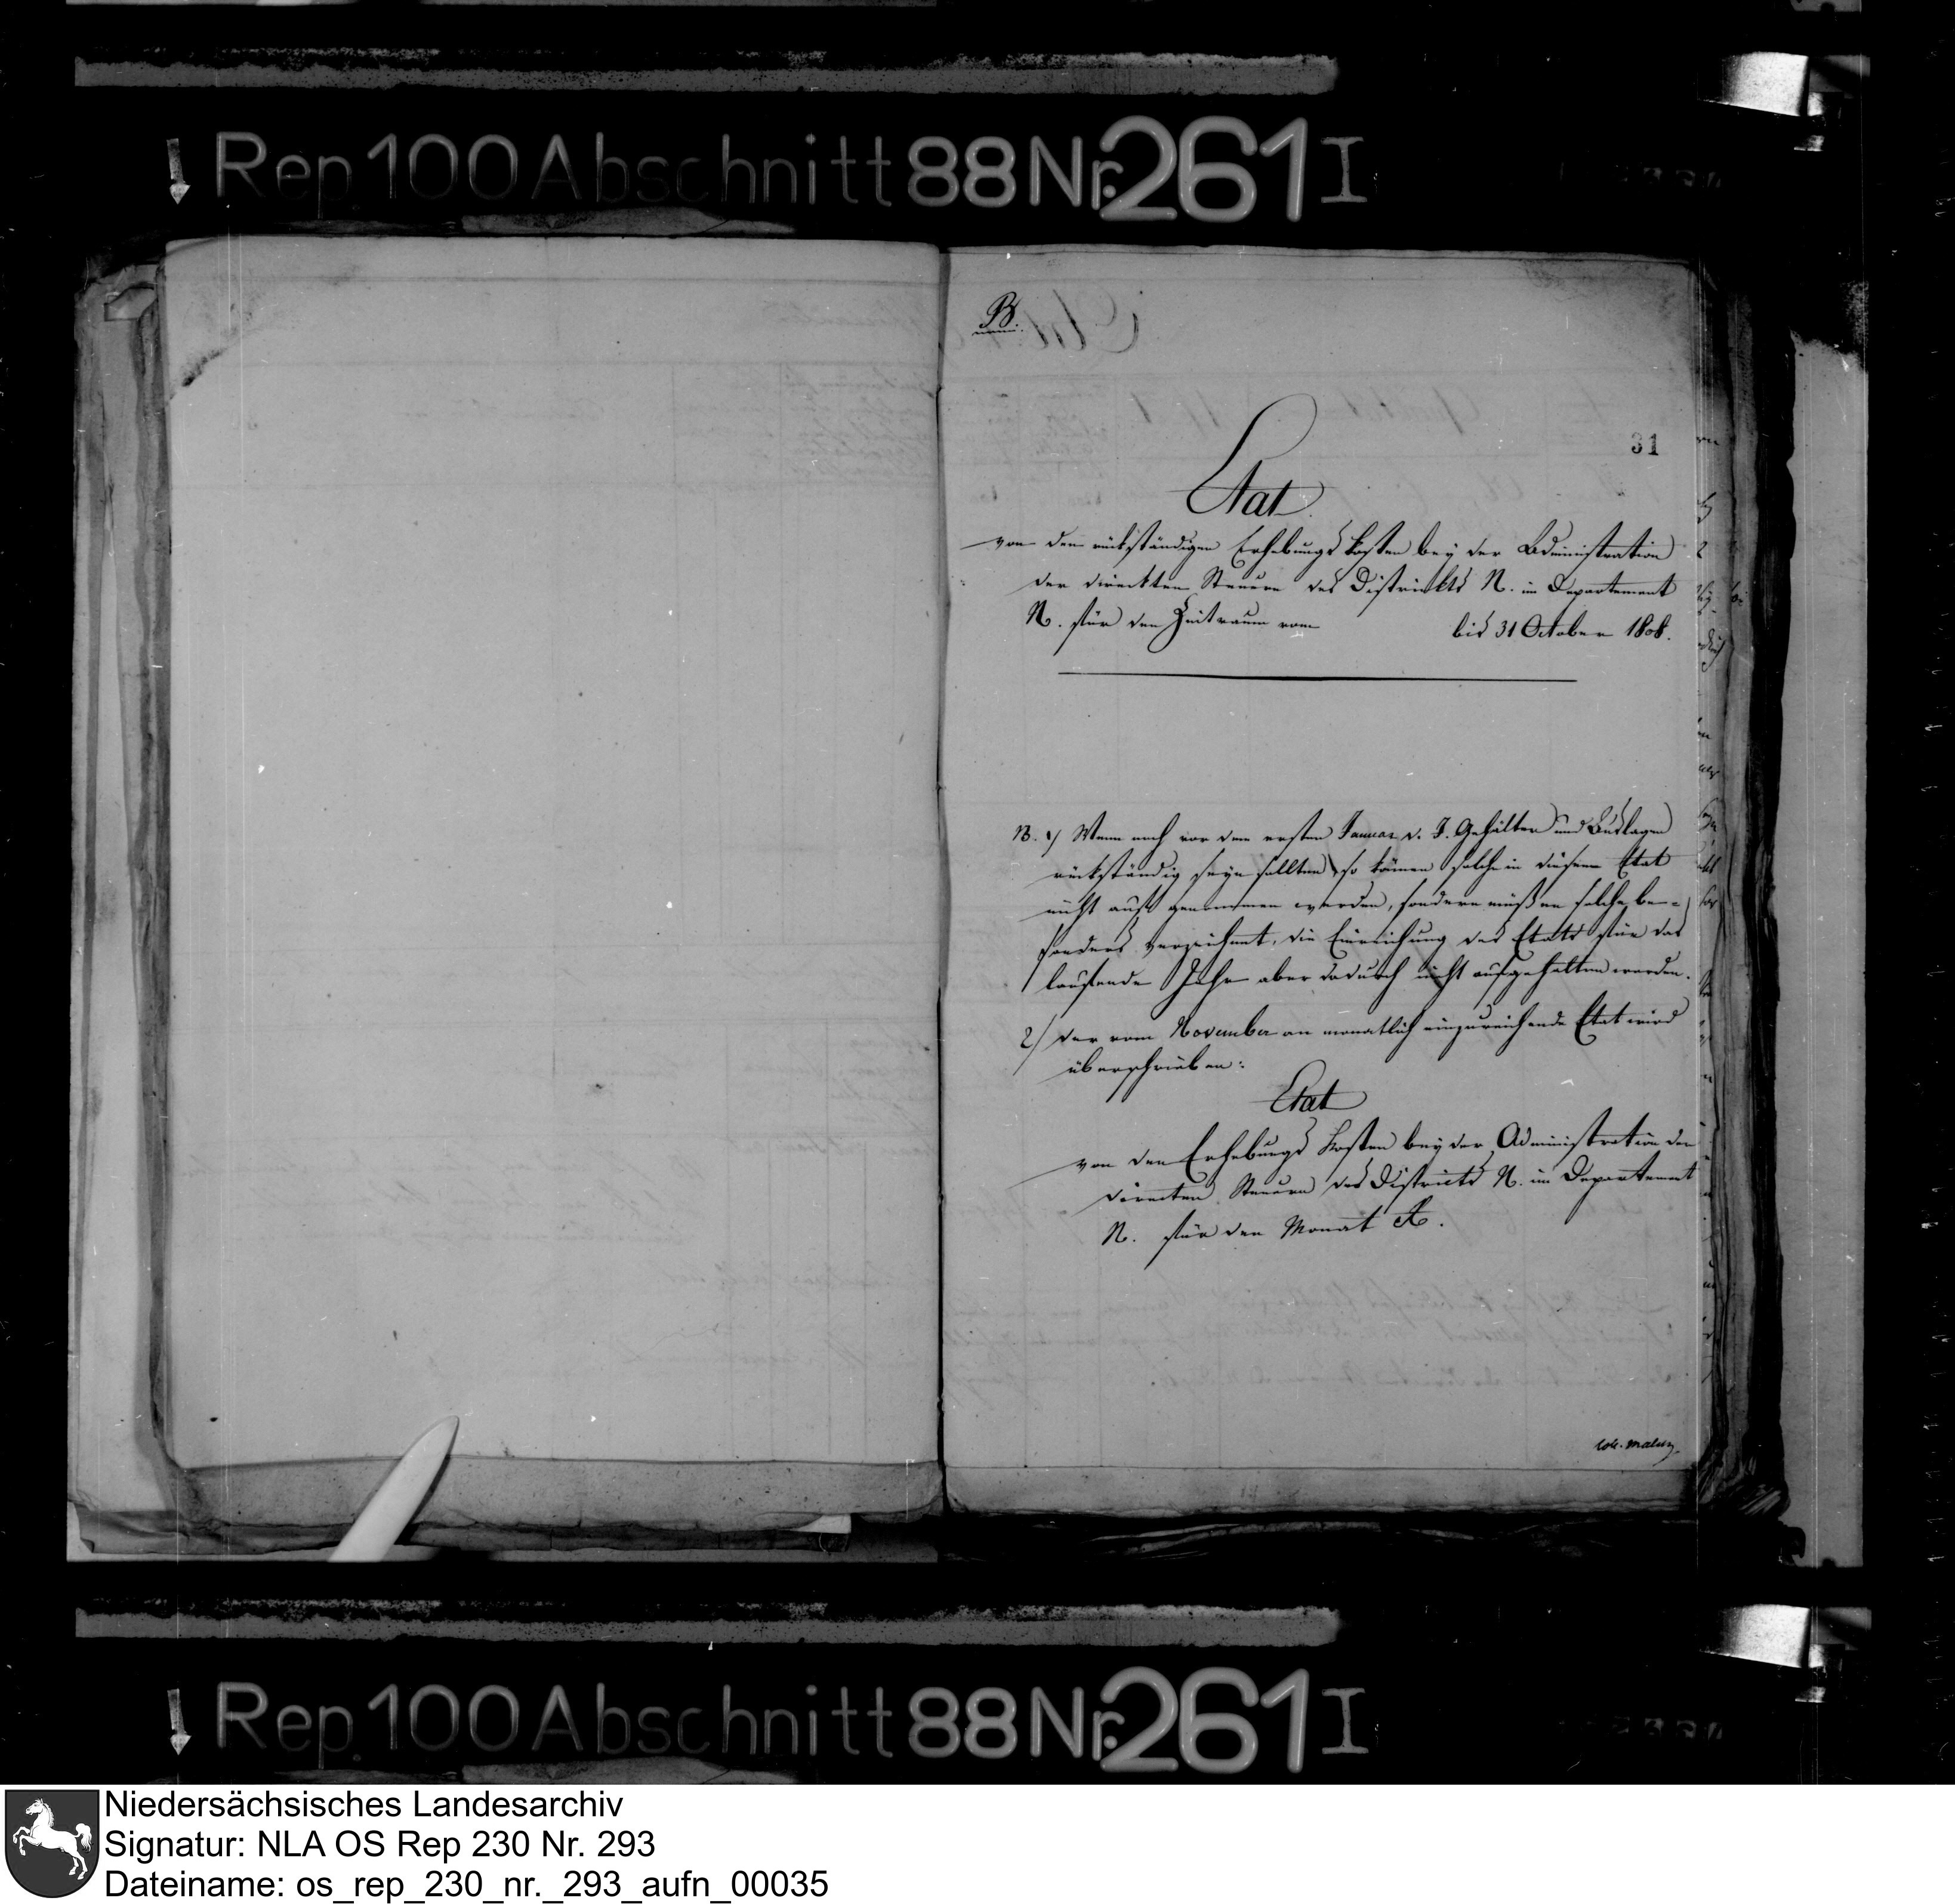 Rep 100 Abschnitt 88 Nr. 261 I
B.
31
Etat
von den rückständigen Erhebungs Kosten bey der Administration
der directten Steuern des Districkts N. im Departement
N. für den Zeitraum vom bis 31 October 1808.
NB. 1) Wenn noch vor dem ersten Januar d. J. Gehälter und Auslagen
rückständig seyn sollten, so können solche in diesem Etat
nicht auf genommen werden, sondern müßen solche be-
sonders verzeichnet, die Einreichung des Etats für das
laufende Jahr aber dadurch nicht aufgehalten werden.
2) Der vom November an monatlich einzureichende Etat wird
überschrieben:
Etat
von den Erhebungs Kosten bey der Administration der
directen Steuern des Districts N. im Departement
N. für den Monat
Rep 100 Abschnitt 88 Nr. 261 I
Niedersächsisches Landesarchiv
Signatur: NLA OS Rep 230 Nr. 293
Dateiname: os_rep_230_nr._293_aufn_00035